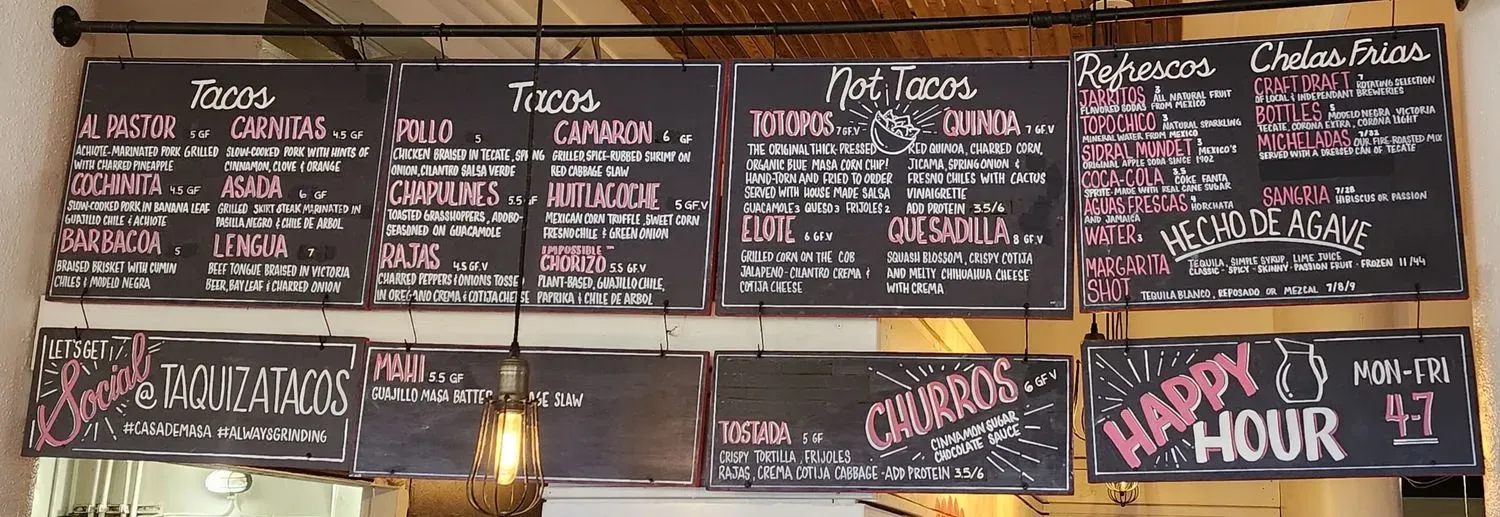 Tacos
AL PASTOR 5 GF
ACHIOTE-MARINATED PORK GRILLED
WITH CHARRED PINEAPPLE
COCHINITA 4.5 GF
SLOW-COOKED PORK IN BANANA LEAF
GUAJILLO CHILE & ACHIOTE
BARBACOA 5
BRAISED BRISKET WITH CUMIN
CHILES & MODELO NEGRA
CARNITAS 4.5 GF
SLOW-COOKED PORK WITH HINTS OF
CINNAMON, CLOVE & ORANGE
ASADA 6 GF
GRILLED SKIRT STEAK MARINATED IN
PASILLA NEGRO & CHILE DE ARBOL
LENGUA 7
BEEF TONGUE BRAISED IN VICTORIA
BEER, BAY LEAF & CHARRED ONION
Tacos
POLLO 5
CHICKEN BRAISED IN TECATE, SPRING
ONION, CILANTRO SALSA VERDE
CHAPULINES 5.5 GF
TOASTED GRASSHOPPERS, ADOBO-
SEASONED ON GUACAMOLE
RAJAS 4.5 GF.V
CHARRED PEPPERS & ONIONS TOSSE
IN OREGANO CREMA & COTIJA CHEESE
CAMARON 6 GF
GRILLED, SPICE-RUBBED SHRIMP ON
RED CABBAGE SLAW
HUITLACOCHE 5 GF.V
MEXICAN CORN TRUFFLE, SWEET CORN
FRESNO CHILE & GREEN ONION
IMPOSSIBLE ™
CHORIZO 5.5 GF.V
PLANT-BASED, GUAJILLO CHILE,
PAPRIKA & CHILE DE ARBOL
Not Tacos
TOTOPOS 7 GF.V
THE ORIGINAL THICK-PRESSED
ORGANIC BLUE MASA CORN CHIP!
HAND-TORN AND FRIED TO ORDER
SERVED WITH HOUSE MADE SALSA
GUACAMOLE 3 QUESO 3 FRIJOLES 2
ELOTE 6 GF.V
GRILLED CORN ON THE COB
JALAPENO-CILANTRO CREMA &
COTIJA CHEESE
QUINOA 7 GF.V
RED QUINOA, CHARRED CORN,
JICAMA, SPRING ONION &
FRESNO CHILES WITH CACTUS
VINAIGRETTE
ADD PROTEIN 3.5/6
QUESADILLA 8 GF.V
SQUASH BLOSSOM, CRISPY COTIJA
AND MELTY CHIHUAHUA CHEESE
WITH CREMA
Refrescos
JARRITOS 3 ALL NATURAL FRUIT
FLAVORED SODAS FROM MEXICO
TOPO CHICO 3 NATURAL SPARKLING
MINERAL WATER FROM MEXICO
SIDRAL MUNDET 3 MEXICO'S
ORIGINAL APPLE SODA SINCE 1902
COCA-COLA 3.5 COKE FANTA
SPRITE-MADE WITH REAL CANE SUGAR
AGUAS FRESCAS 4 HORCHATA
AND JAMAICA
WATER 3
Chelas Frias
CRAFT DRAFT 7 ROTATING SELECTION
OF LOCAL & INDEPENDANT BREWERIES
BOTTLES 5 MODELO NEGRA, VICTORIA
TECATE, CORONA EXTRA, CORONA LIGHT
MICHELADAS 7/32 OUR FIRE-ROASTED MIX
SERVED WITH A DRESSED CAN OF TECATE
SANGRIA 7/28 HIBISCUS OR PASSION
HECHO DE AGAVE
MARGARITA TEQUILA, SIMPLE SYRUP, LIME JUICE
CLASSIC · SPICY · SKINNY · PASSION FRUIT · FROZEN 11/44
SHOT TEQUILA BLANCO, REPOSADO OR MEZCAL 7/8/9
LET'S GET
Social @TAQUIZATACOS
#CASADEMASA #ALWAYSGRINDING
MAHI 5.5 GF
GUAJILLO MASA BATTER GE SLAW
TOSTADA 5 GF
CRISPY TORTILLA, FRIJOLES
RAJAS, CREMA COTIJA CABBAGE -ADD PROTEIN 3.5/6
CHURROS 6 GF V
CINNAMON SUGAR
CHOCOLATE SAUCE
HAPPY
HOUR
MON-FRI
4-7